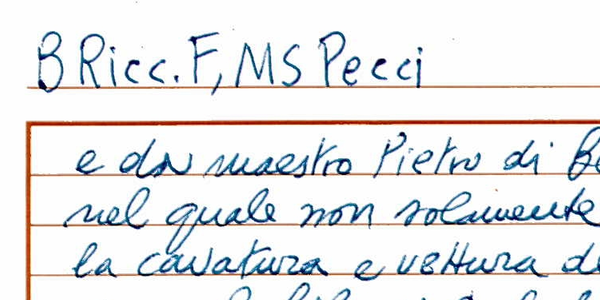 B Ricc. F, MS Pecci
e da maestro Pietro di
nel quale non solamente
la cavatura e vettura di